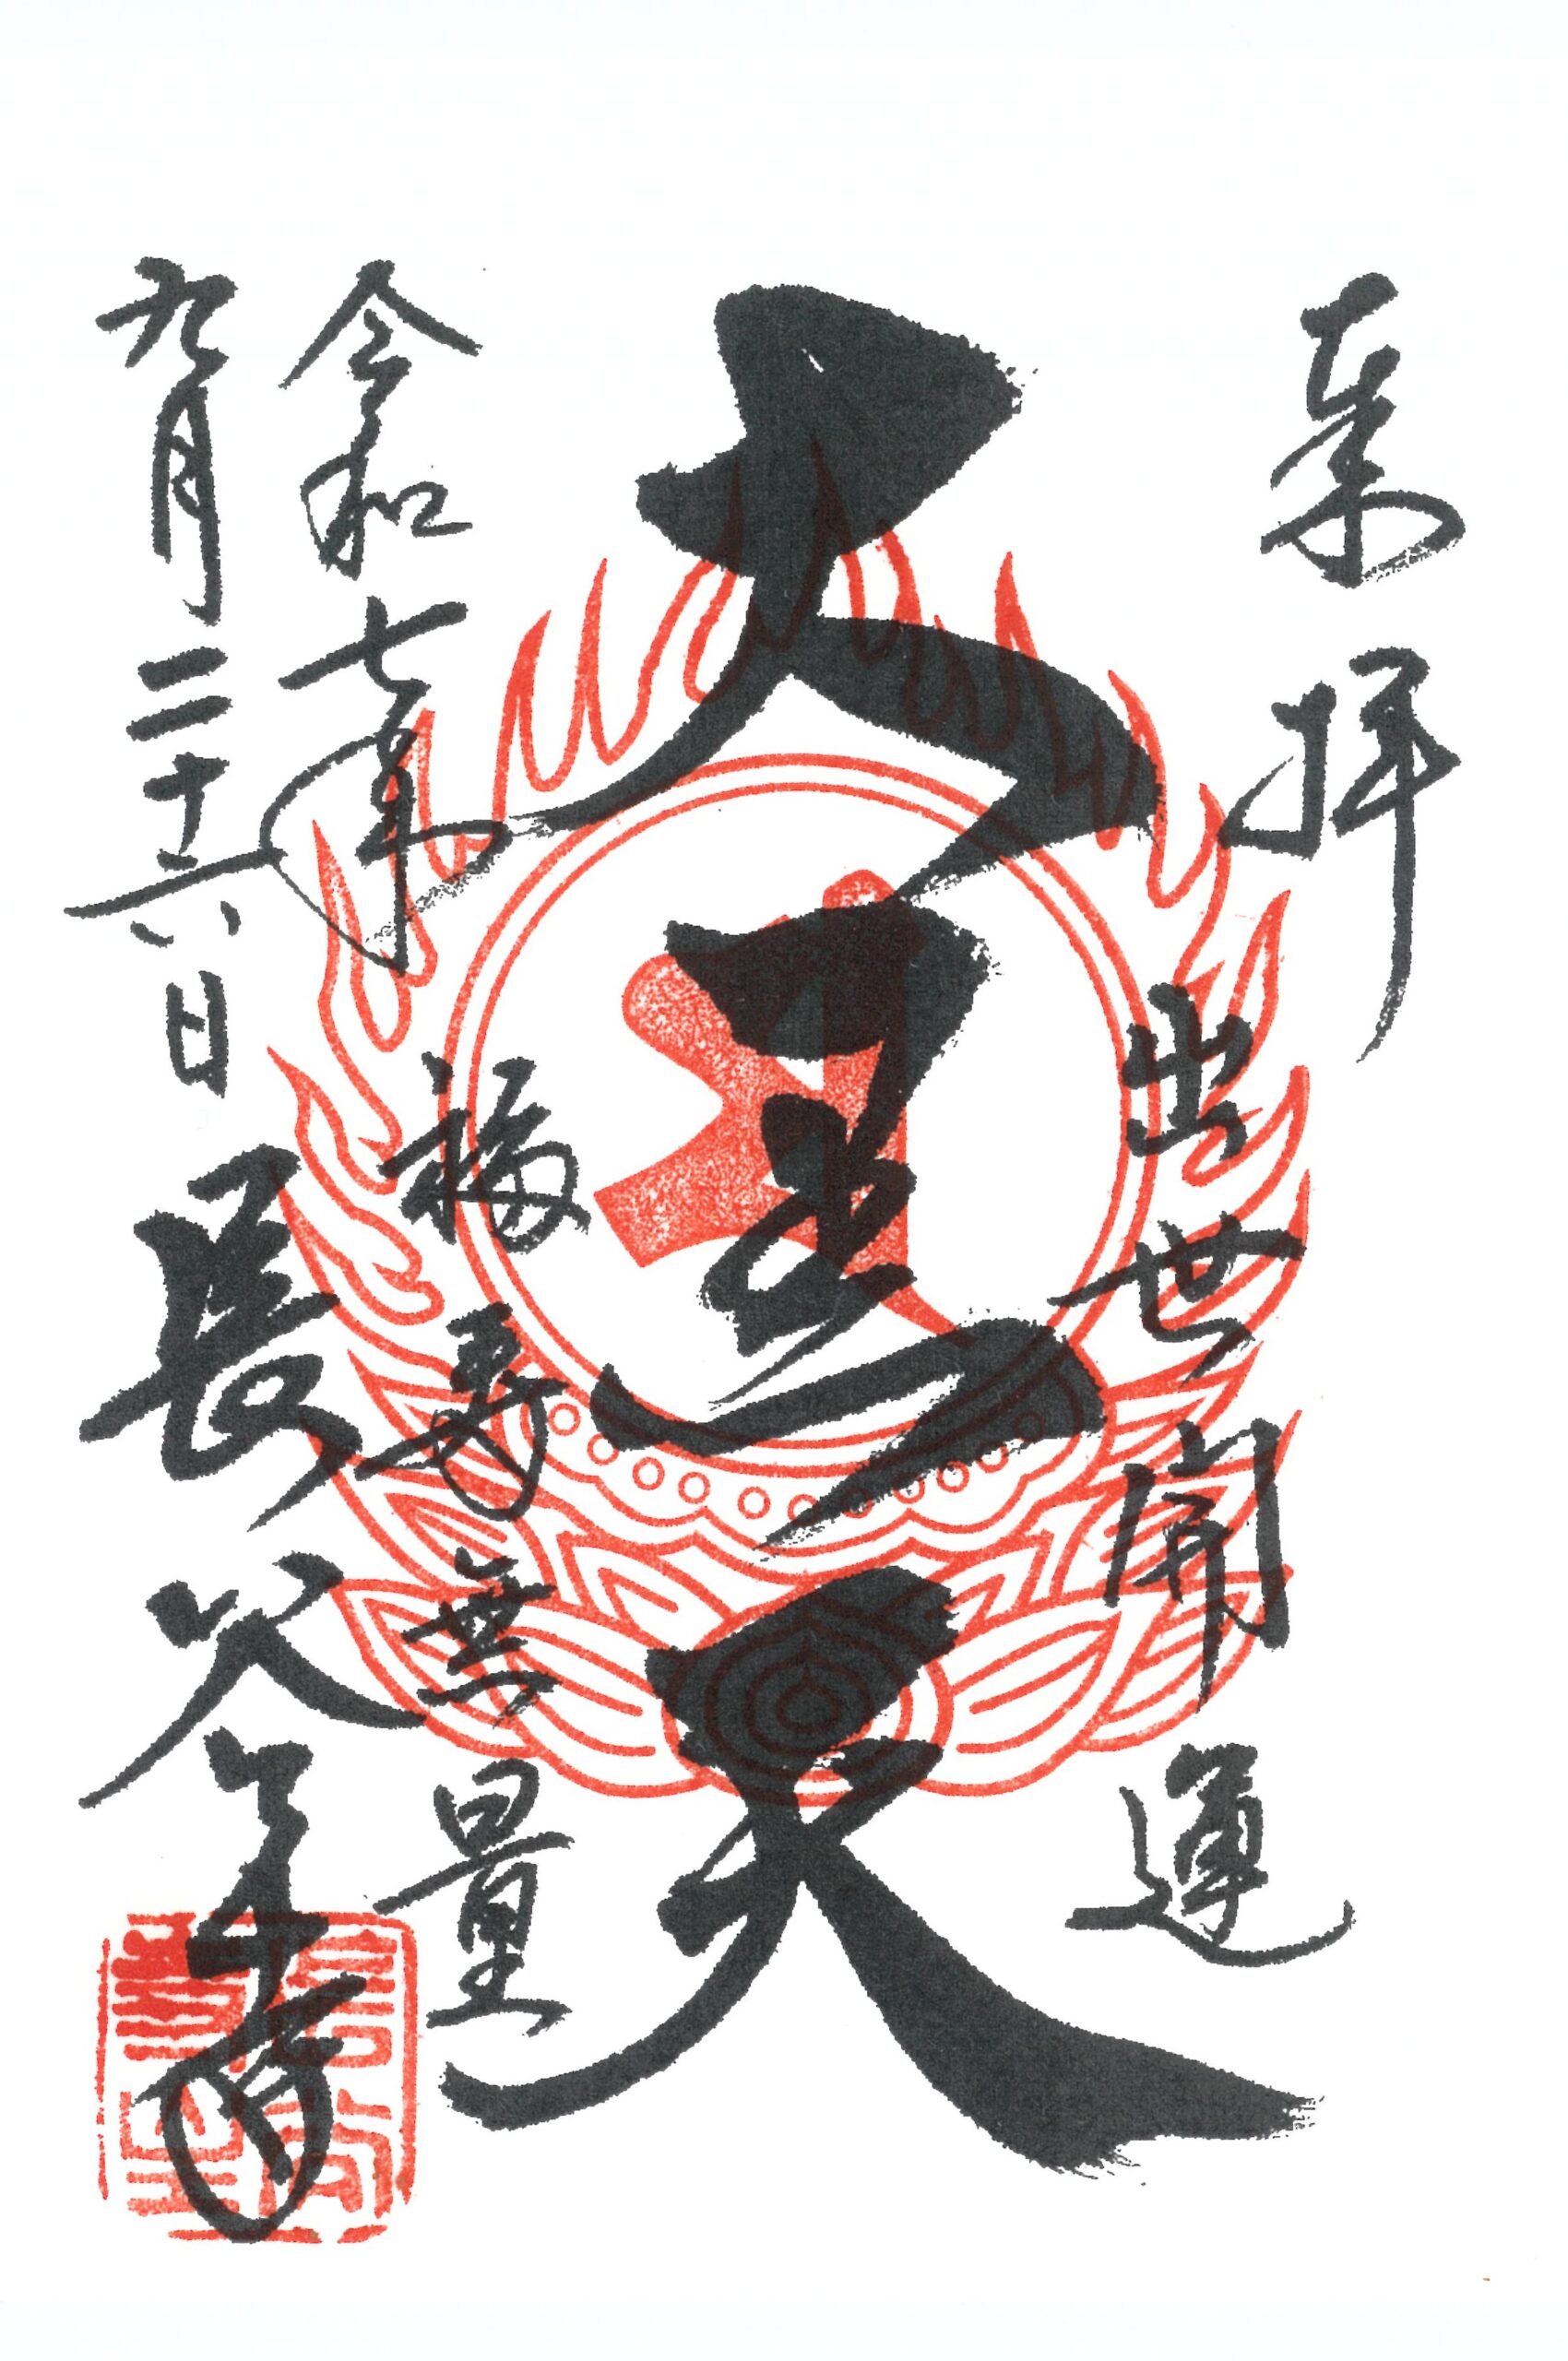 奉拝
出世開運
大黒天
福寿無量
令和七年
九月二十六日
長